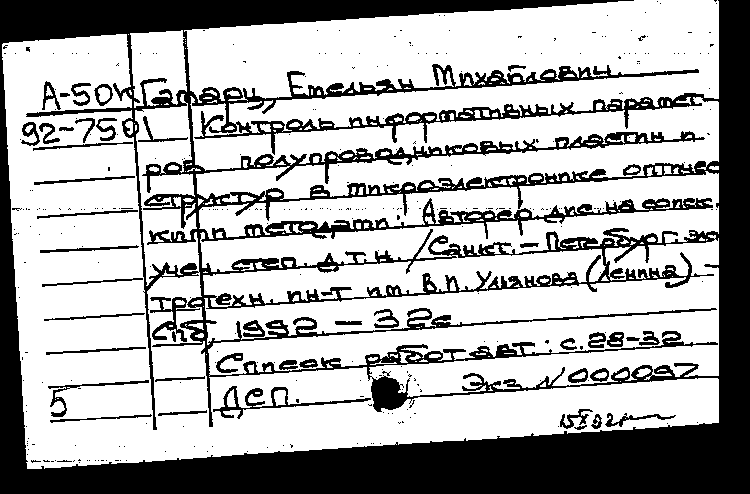 А-50к Гамарц, Емельян Михайлович.
92-7501 Контроль информативных парамет-
ров полупроводниковых пластин и
структур в микроэлектронике оптичес
кими методами: Автореф. дис. на соиск.
учен. степ. д.т.н. / Санкт.-Петербург. элек
тротехн. ин-т им. В.И. Ульянова (Ленина) -
Спб, 1992. - 32с.
Список работ авт.: с.28-32.
5 ДСП. Экз. N 000097